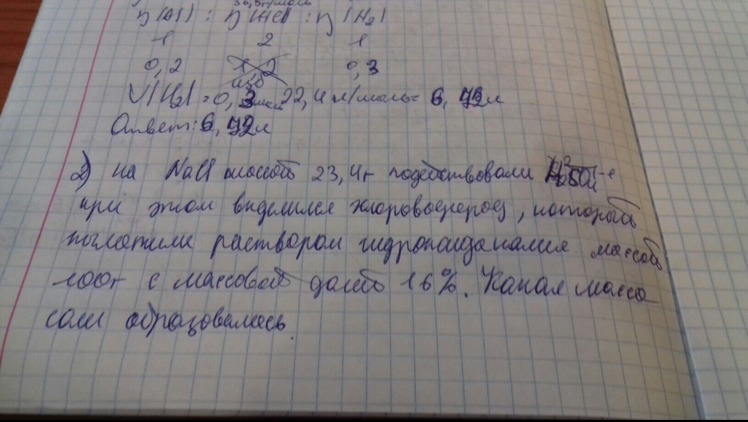 η(Al) : η(HCl) : η(H₂)
1 2 1
0,2 0,3
V(H₂) = 0,3 22,4 л/моль = 6,72 л
Ответ: 6,72 л
2) на NaCl массой 23,4г подействовали H₂SO₄
при этом выделился хлороводород, который
поглотили раствором гидроксида калия массой
100г с массовой долей 16%. Какая масса
соли образовалась.